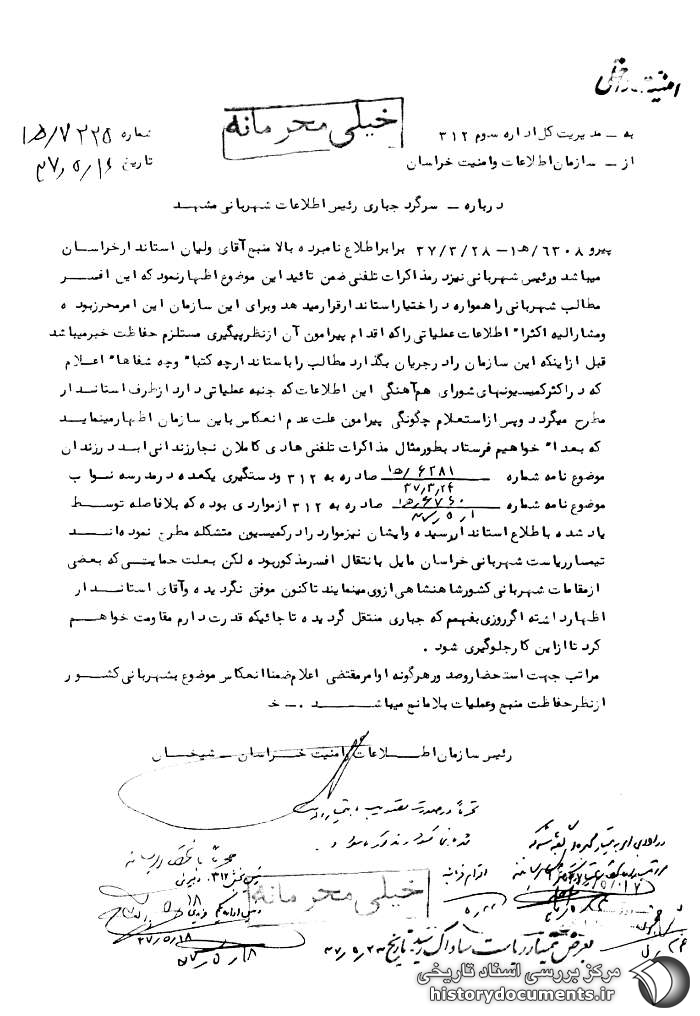 امنیت داخلی
خیلی محرمانه
به – مدیریت کل اداره سوم ۳۱۲
شماره ۷۲۲۵/ه‍۱
از – سازمان اطلاعات وامنیت خراسان
تاریخ ۴۷/۵/۱۶
درباره – سرگرد جباری رئیس اطلاعات شهربانی مشهد
پیرو ۶۳۰۸/ه‍۱–۴۷/۳/۲۸ برابر اطلاع نامبرده بالا منبع آقای ولیان استاندار خراسان
میباشد ورئیس شهربانی نیز در مذاکرات تلفنی ضمن تائید این موضوع اظهار نمود که این افسر
مطالب شهربانی را همواره در اختیار استاندار قرار میدهد وبرای این سازمان این امر محرز بوده
ومشارالیه اکثرا" اطلاعات عملیاتی را که اقدام پیرامون آن از نظر پیگیری مستلزم حفاظت خبر میباشد
قبل از اینکه این سازمان را در جریان بگذارد مطالب را باستاندار چه کتبا" وچه شفاها" اعلام
که در اکثر کمیسیونهای شورای هم‌آهنگی این اطلاعات که جنبه عملیاتی دارد از طرف استاندار
مطرح میگردد وپس از استعلام چگونگی پیرامون علت عدم انعکاس باین سازمان اظهار مینماید
که بعدا" خواهیم فرستاد بطور مثال مذاکرات تلفنی هادی کاملان نجار زندانی ابد در زندان
موضوع نامه شماره ۶۲۸۱/ه‍۱ ۴۷/۳/۲۴ صادره به ۳۱۲ ودستگیری یکعده در مدرسه نواب
موضوع نامه شماره ۶۷۶۰/ه‍۱ صادره به ۳۱۲ از مواردی بوده که بلافاصله توسط
یاد شده با طلاع استاندار رسیده وایشان نیز موارد را در کمیسیون متشکله مطرح نموده‌اند
تیمسار ریاست شهربانی خراسان مایل بانتقال افسر مذکور بوده لکن بعلت حمایتی که بعضی
از مقامات شهربانی کشور شاهنشاهی از وی مینمایند تاکنون موفق نگردیده وآقای استاندار
اظهار داشته اگر روزی بفهمم که جباری منتقل گردیده تا جائیکه قدرت دارم مقاومت خواهم
کرد تا از این کار جلوگیری شود .
مراتب جهت استحضار وصدور هرگونه اوامر مقتضی اعلام ضمنا انعکاس موضوع بشهربانی کشور
از نظر حفاظت منبع وعملیات بلامانع میباشد . – خ
رئیس سازمان اطلاعات وامنیت خراسان – شیخان
خیلی محرمانه
۴۷/۵/۱۷
۴۷/۵/۱۸
بعرض تیمسار ریاست ساواک رسید تاریخ ۴۷/۵/۲۳
مرکز بررسی اسناد تاریخی
historydocuments.ir